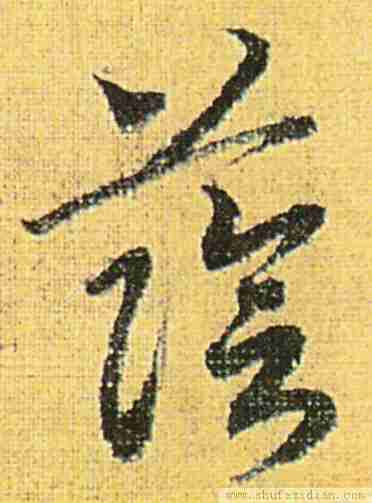 蔭
www.shufazidian.com